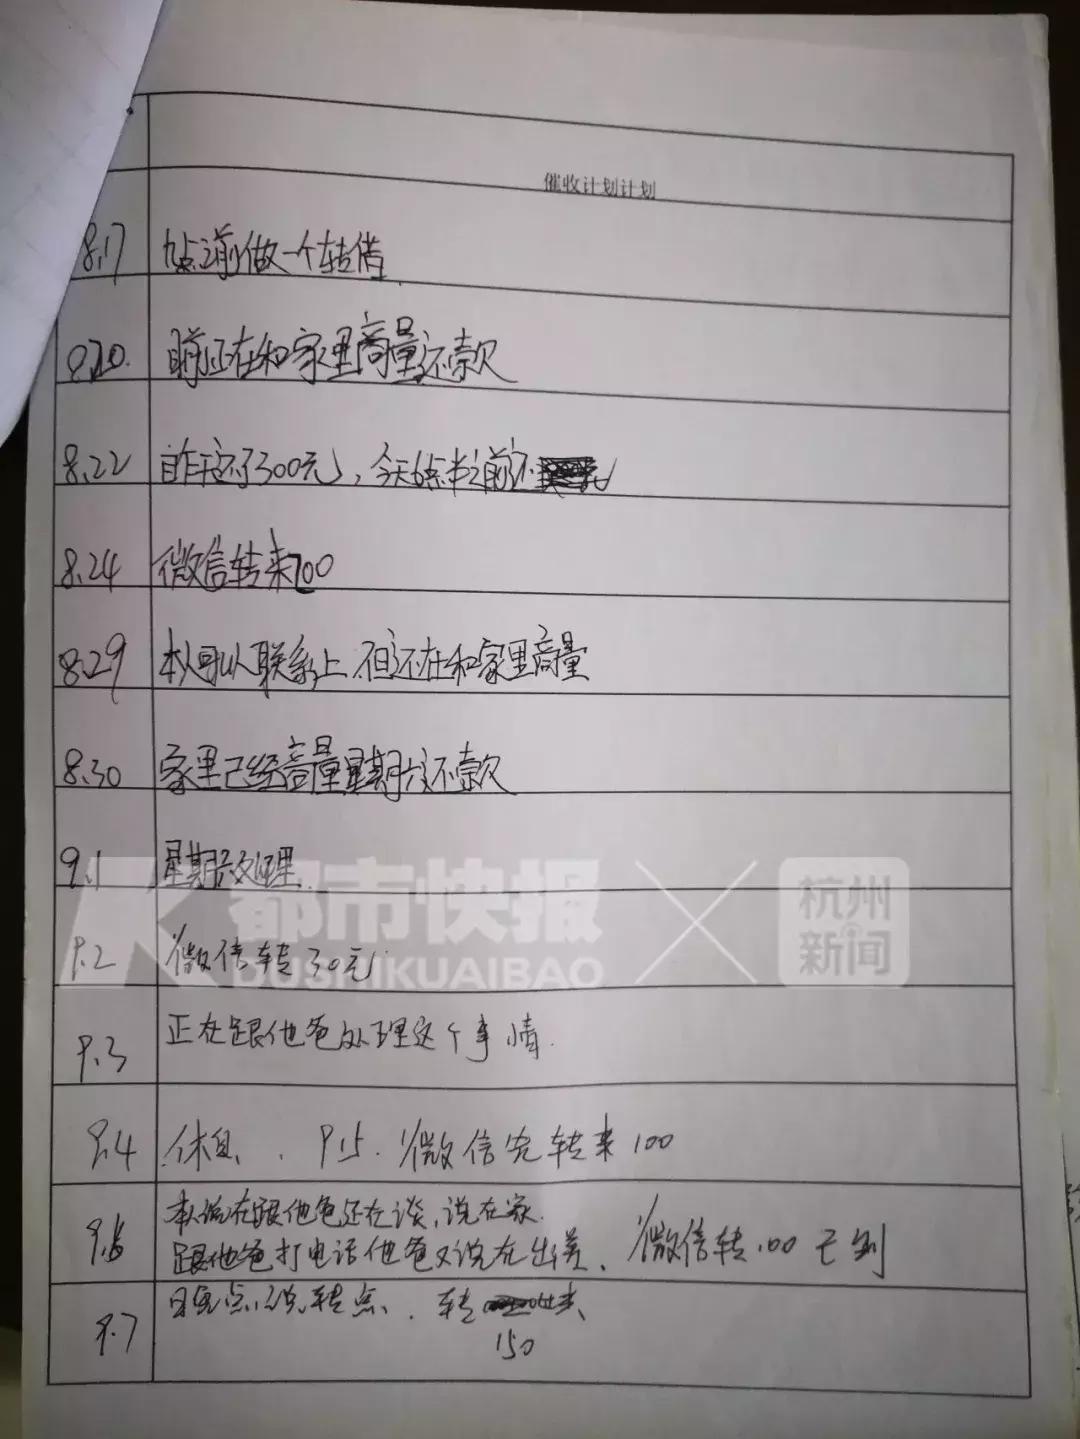 催收计划计划
8.17 九点之前做一个转借
8.20. 目前正在和家里商量还款
8.22 昨天还了300元，今天6点半之前还
8.24 微信转来200
8.29 本人可以联系上，但还在和家里商量
8.30 家里已经商量星期六还款
9.1 星期六处理.
9.2 微信转30元
9.3 正在跟他爸处理这个事情.
9.4 休息、. 9.5. 微信先转来100
9.6 本人说在跟他爸还在谈，说在家.
跟他爸打电话他爸又说在出差、微信转100已到
9.7 点、转点、. 转
150
都市快报 杭州新闻
DUSHIKUAIBAO